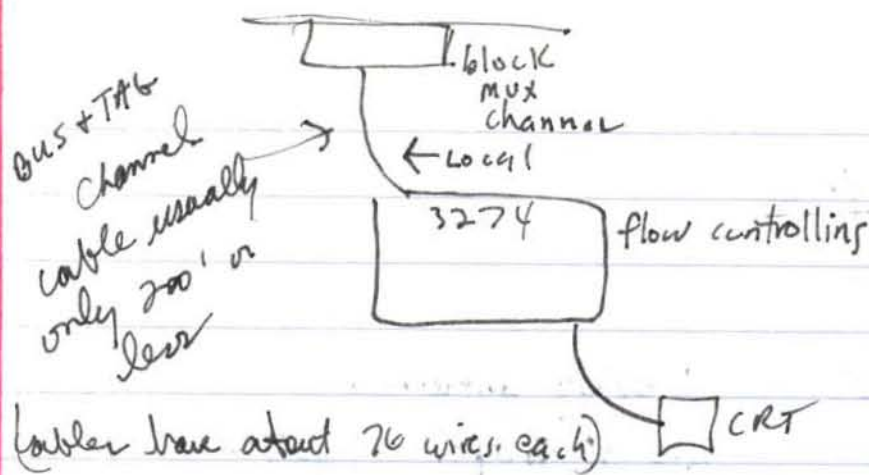 block
mux
channel
← Local
BUS + TAG
channel
cable usually
only 200' or
less
3274
flow controlling
CRT
(cables have about 76 wires each)